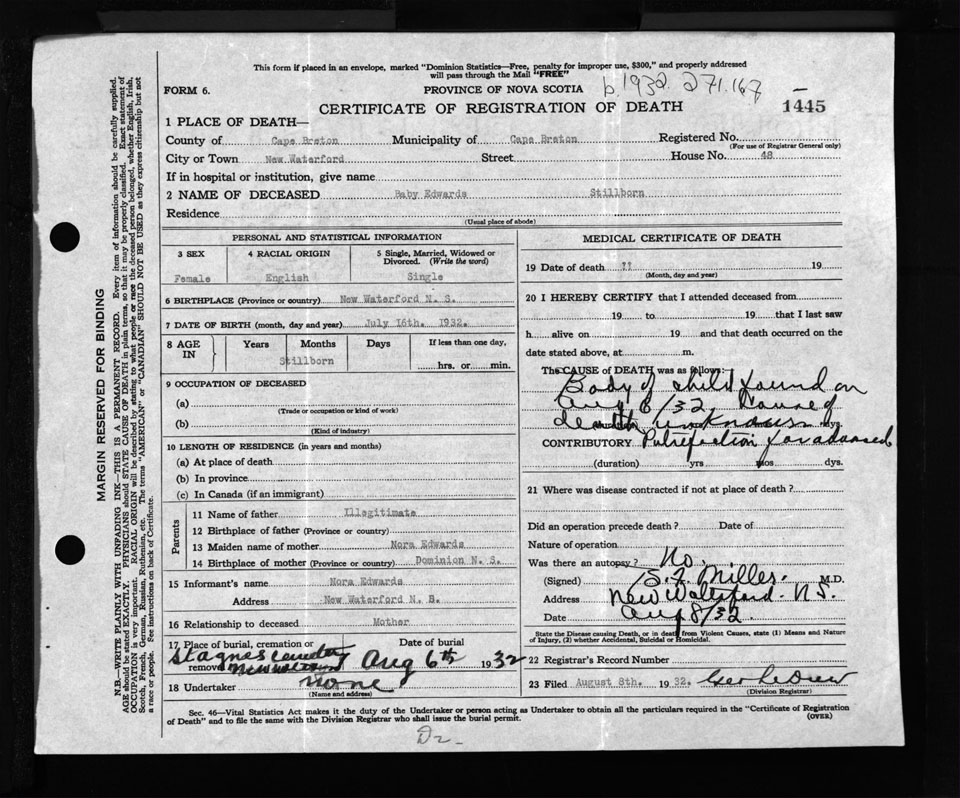 This form if placed in an envelope, marked "Dominion Statistics—Free, penalty for improper use, $300," and properly addressed
will pass through the Mail "FREE"
FORM 6.
PROVINCE OF NOVA SCOTIA
b 1932. 271.167
CERTIFICATE OF REGISTRATION OF DEATH
1445
1 PLACE OF DEATH—
County of Cape Breton Municipality of Cape Breton Registered No.
(For use of Registrar General only)
City or Town New Waterford Street House No. 48
If in hospital or institution, give name
2 NAME OF DECEASED Baby Edwards Stillborn
Residence
(Usual place of abode)
PERSONAL AND STATISTICAL INFORMATION
3 SEX 4 RACIAL ORIGIN 5 Single, Married, Widowed or
Divorced. (Write the word)
Female English Single
6 BIRTHPLACE (Province or country) New Waterford N. S.
7 DATE OF BIRTH (month, day and year) July 16th. 1932.
8 AGE IN Years Months Days If less than one day,
Stillborn
hrs. or min.
9 OCCUPATION OF DECEASED
(a)
(Trade or occupation or kind of work)
(b)
(Kind of industry)
10 LENGTH OF RESIDENCE (in years and months)
(a) At place of death
(b) In province
(c) In Canada (if an immigrant)
Parents
11 Name of father Illegitimate
12 Birthplace of father (Province or country)
13 Maiden name of mother Nora Edwards
14 Birthplace of mother (Province or country) Dominion N. S.
15 Informant's name Nora Edwards
Address New Waterford N. B.
16 Relationship to deceased Mother
17 Place of burial, cremation or Date of burial
removal
St Agnes Cemetery
New Waterford
Aug 6th 1932
18 Undertaker none
(Name and address)
MEDICAL CERTIFICATE OF DEATH
19 Date of death ?? 19
(Month, day and year)
20 I HEREBY CERTIFY that I attended deceased from
19 to 19 that I last saw
h alive on 19 and that death occurred on the
date stated above, at m.
The CAUSE OF DEATH was as follows:
Body of child found on
Aug 6/32. Cause of
death unknown dys.
CONTRIBUTORY Putrefaction far advanced
(duration) yrs mos dys.
21 Where was disease contracted if not at place of death?
Did an operation precede death? Date of
Nature of operation
Was there an autopsy? No.
(Signed) Miller. M.D.
Address New Waterford. N.S.
Date Aug 8/32
State the Disease causing Death, or in death from Violent Causes, state (1) Means and Nature
of Injury, (2) whether Accidental, Suicidal or Homicidal.
22 Registrar's Record Number
23 Filed August 8th. 1932.
(Division Registrar)
Sec. 46—Vital Statistics Act makes it the duty of the Undertaker or person acting as Undertaker to obtain all the particulars required in the "Certificate of Registration
of Death" and to file the same with the Division Registrar who shall issue the burial permit.
(OVER)
MARGIN RESERVED FOR BINDING
N.B.—WRITE PLAINLY WITH UNFADING INK—THIS IS A PERMANENT RECORD. Every item of information should be carefully supplied.
AGE should be stated EXACTLY. PHYSICIANS should STATE CAUSE OF DEATH in plain terms, so that it may be properly classified. Exact statement of
OCCUPATION is very important. RACIAL ORIGIN will be described by stating to what people or race the deceased person belonged, whether English, Irish,
Scotch, French, German, Russian, Ruthenian, etc. The terms "AMERICAN" or "CANADIAN" SHOULD NOT BE USED as they express citizenship but not
a race or people. See instructions on back of Certificate.